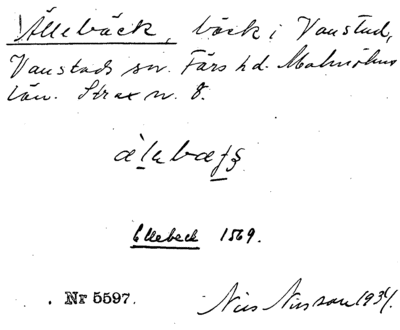 Ällebäck, bäck i Vanstad,
Vanstads sn. Färs hd. Malmöhus
län. Strax n. 8.
Ellebeck 1569.
Nr 5597. Nils Nilsson 1934.